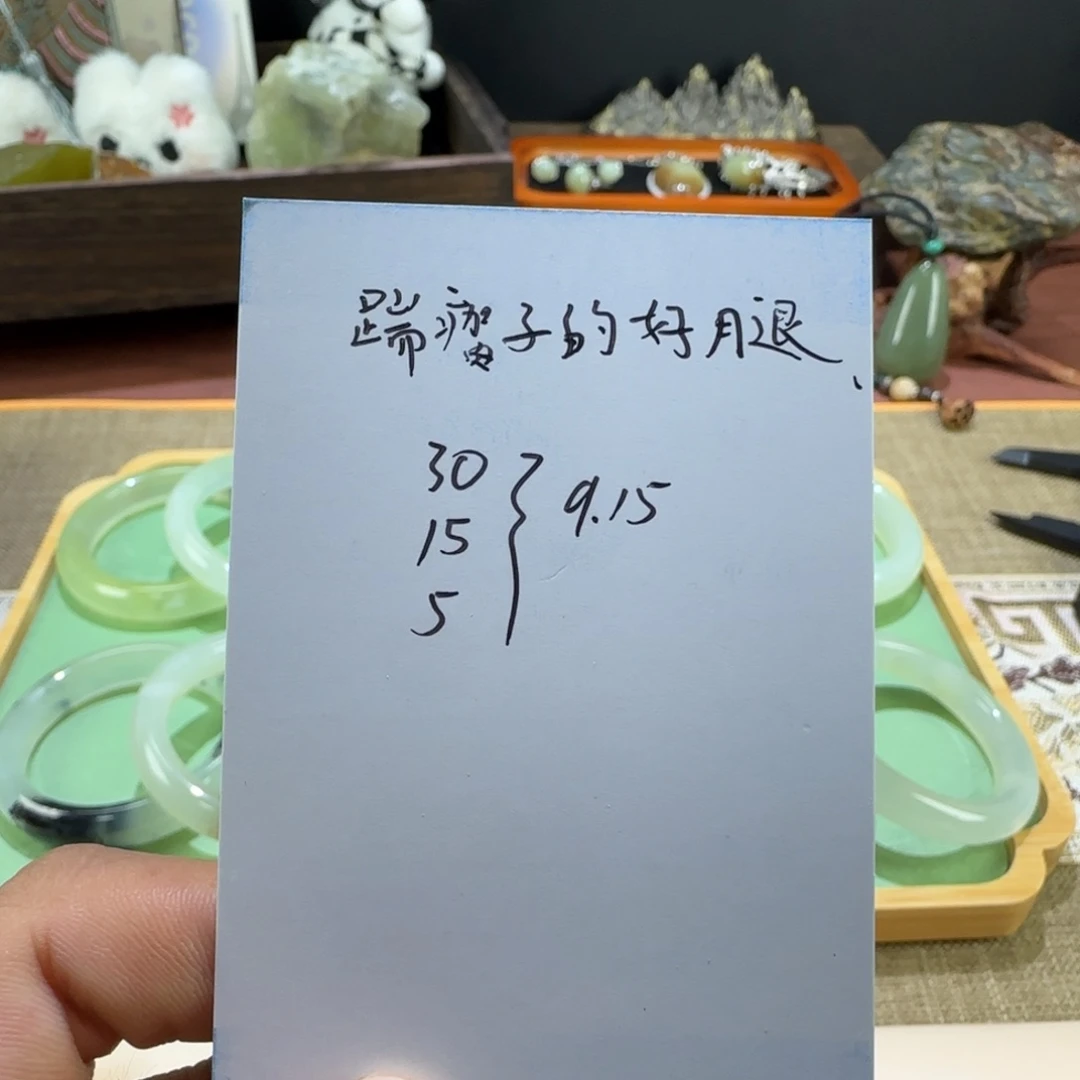 踹瘸子的好月退、
30
15 } 9.15
5